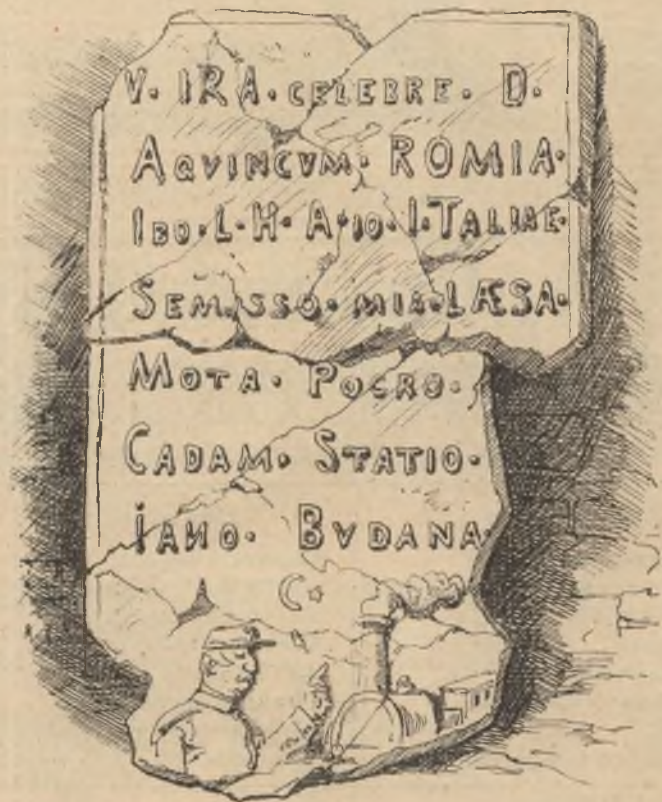 V. IRA. CELEBRE. D.
AQVINCVM. ROMIA.
IBO. L. H. A. 10. I. TALIAE.
SEM. SSO. MIA. LÆSA.
MOTA. POCRO.
CADAM. STATIO.
IANO. BVDANA.
C